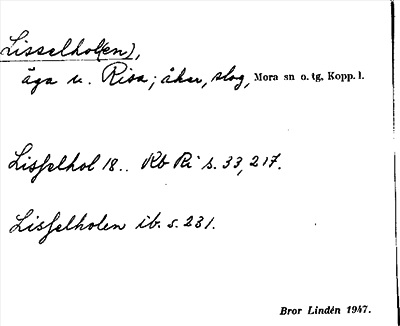 Lisselhol(en),
äga u. Risa; åker, slog, Mora sn o. tg, Kopp. l.
Lisselhol 18.. Rb Ri s. 33, 217.
Lisselholen ib. s. 231.
Bror Lindén 1947.